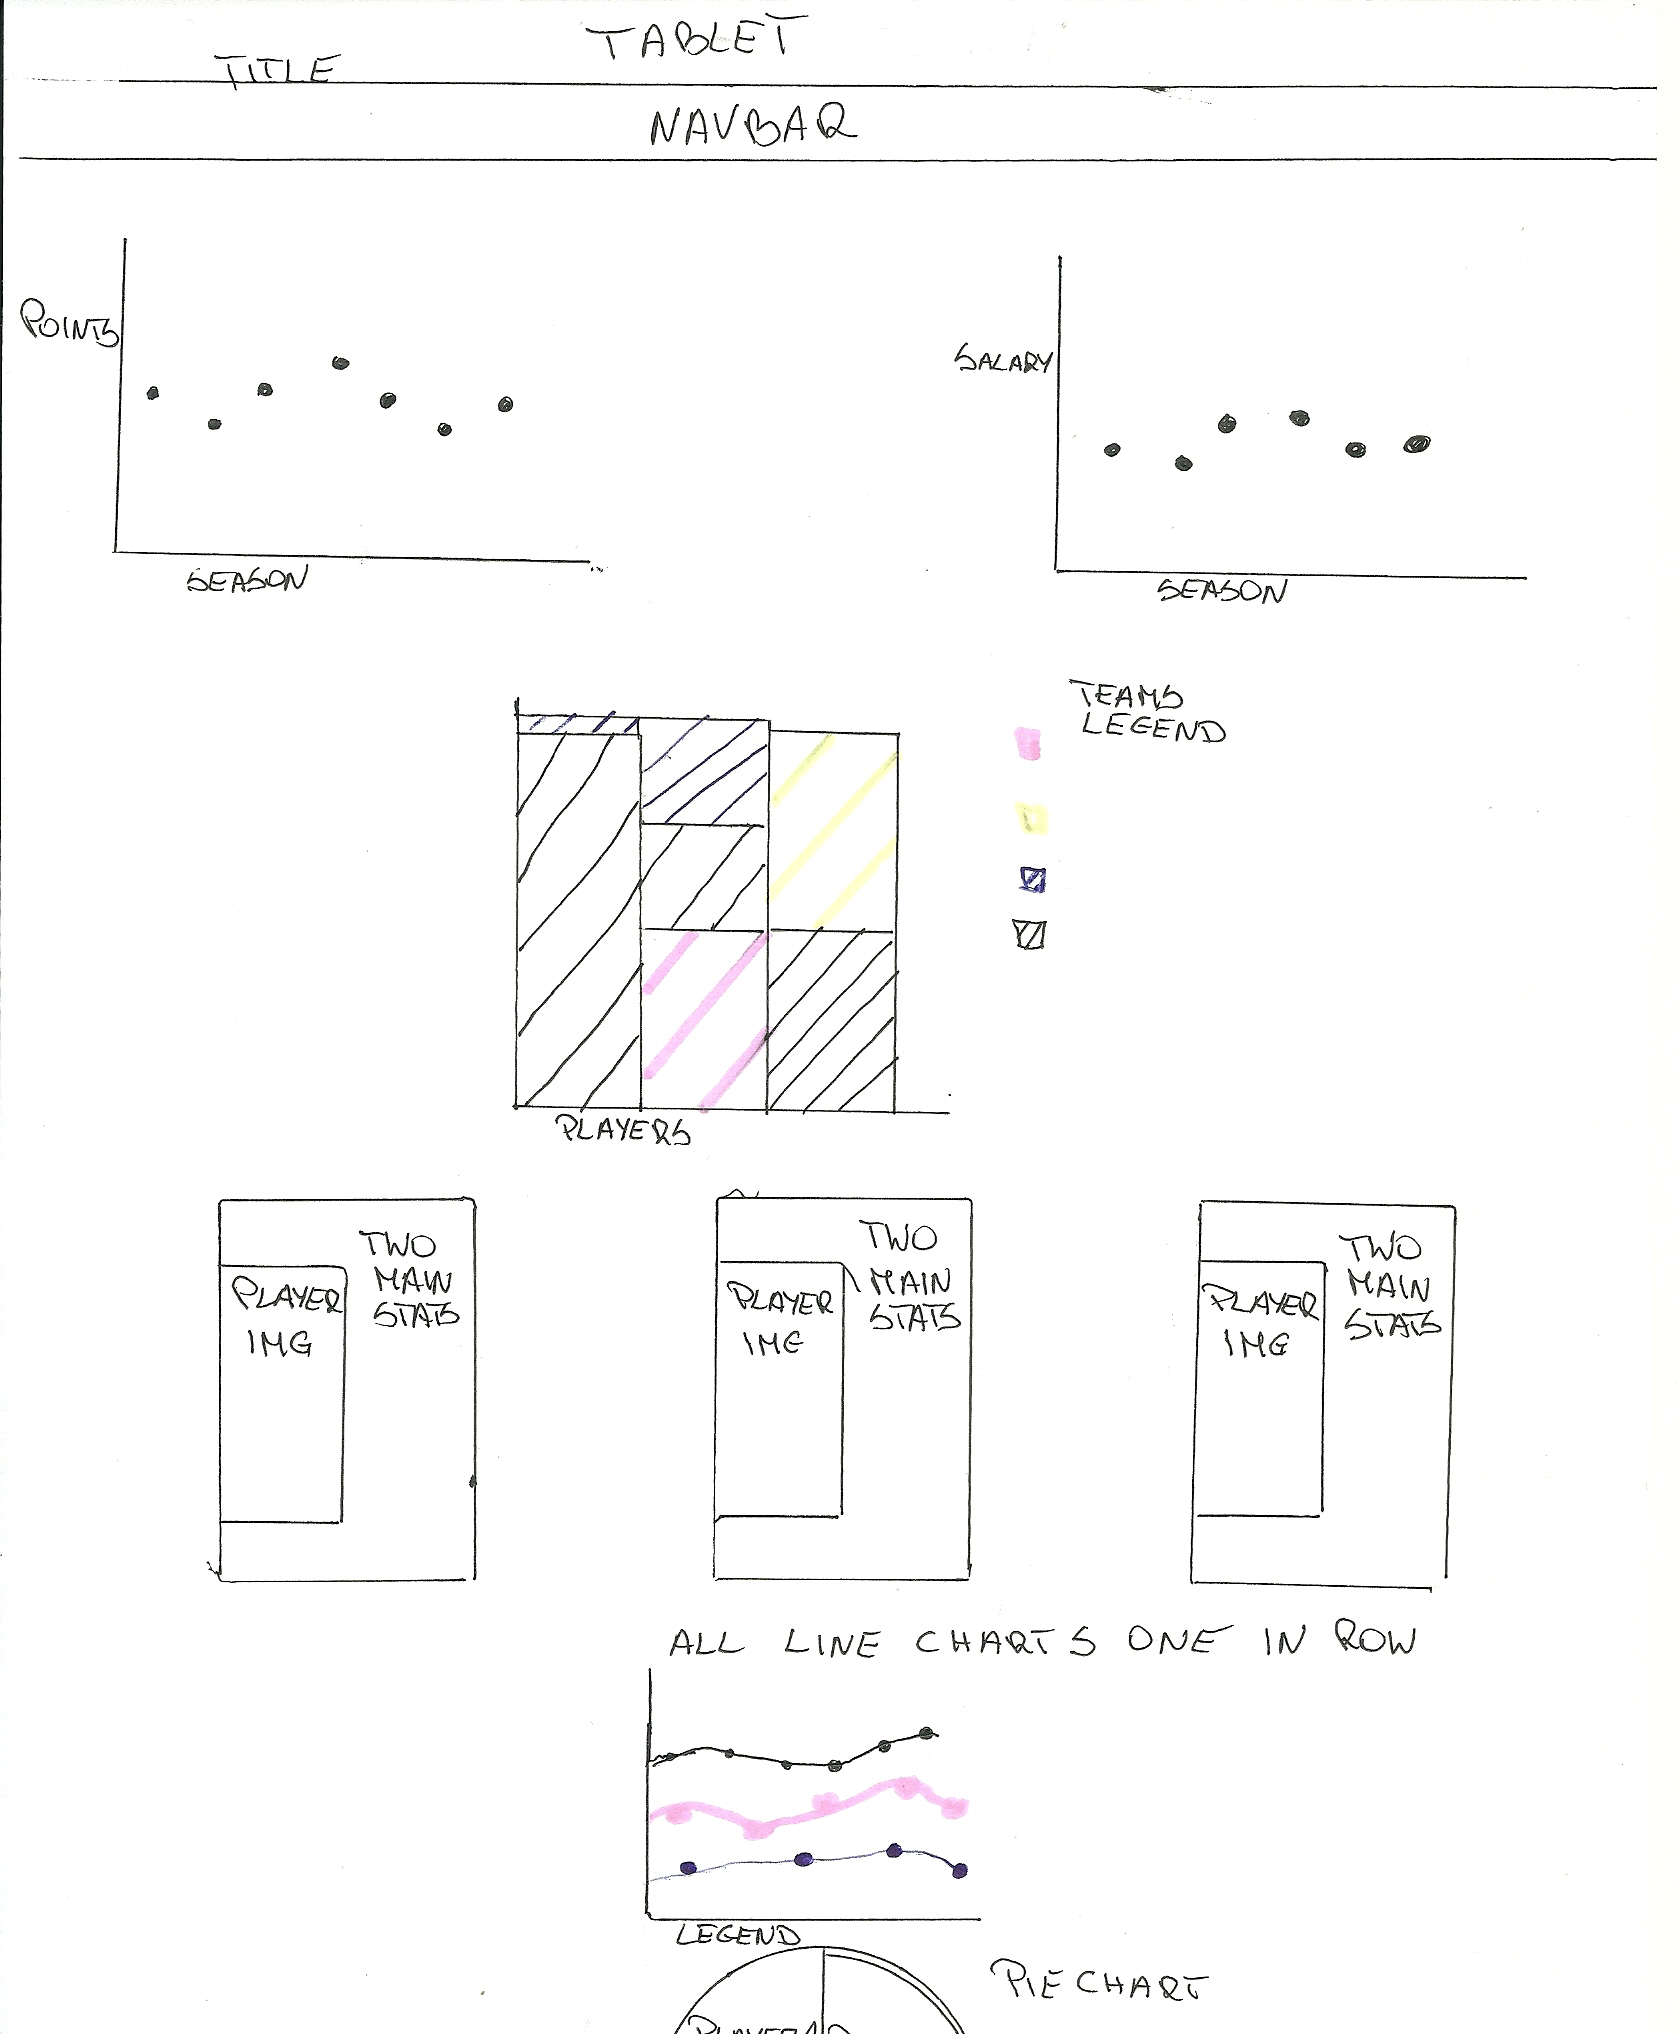 TABLET
TITLE
NAVBAR
POINTS
SEASON
SALARY
SEASON
TEAMS
LEGEND
PLAYERS
TWO
MAIN
STATS
PLAYER
IMG
TWO
MAIN
STATS
PLAYER
IMG
TWO
MAIN
STATS
PLAYER
IMG
ALL LINE CHARTS ONE IN ROW
LEGEND
PIE CHART